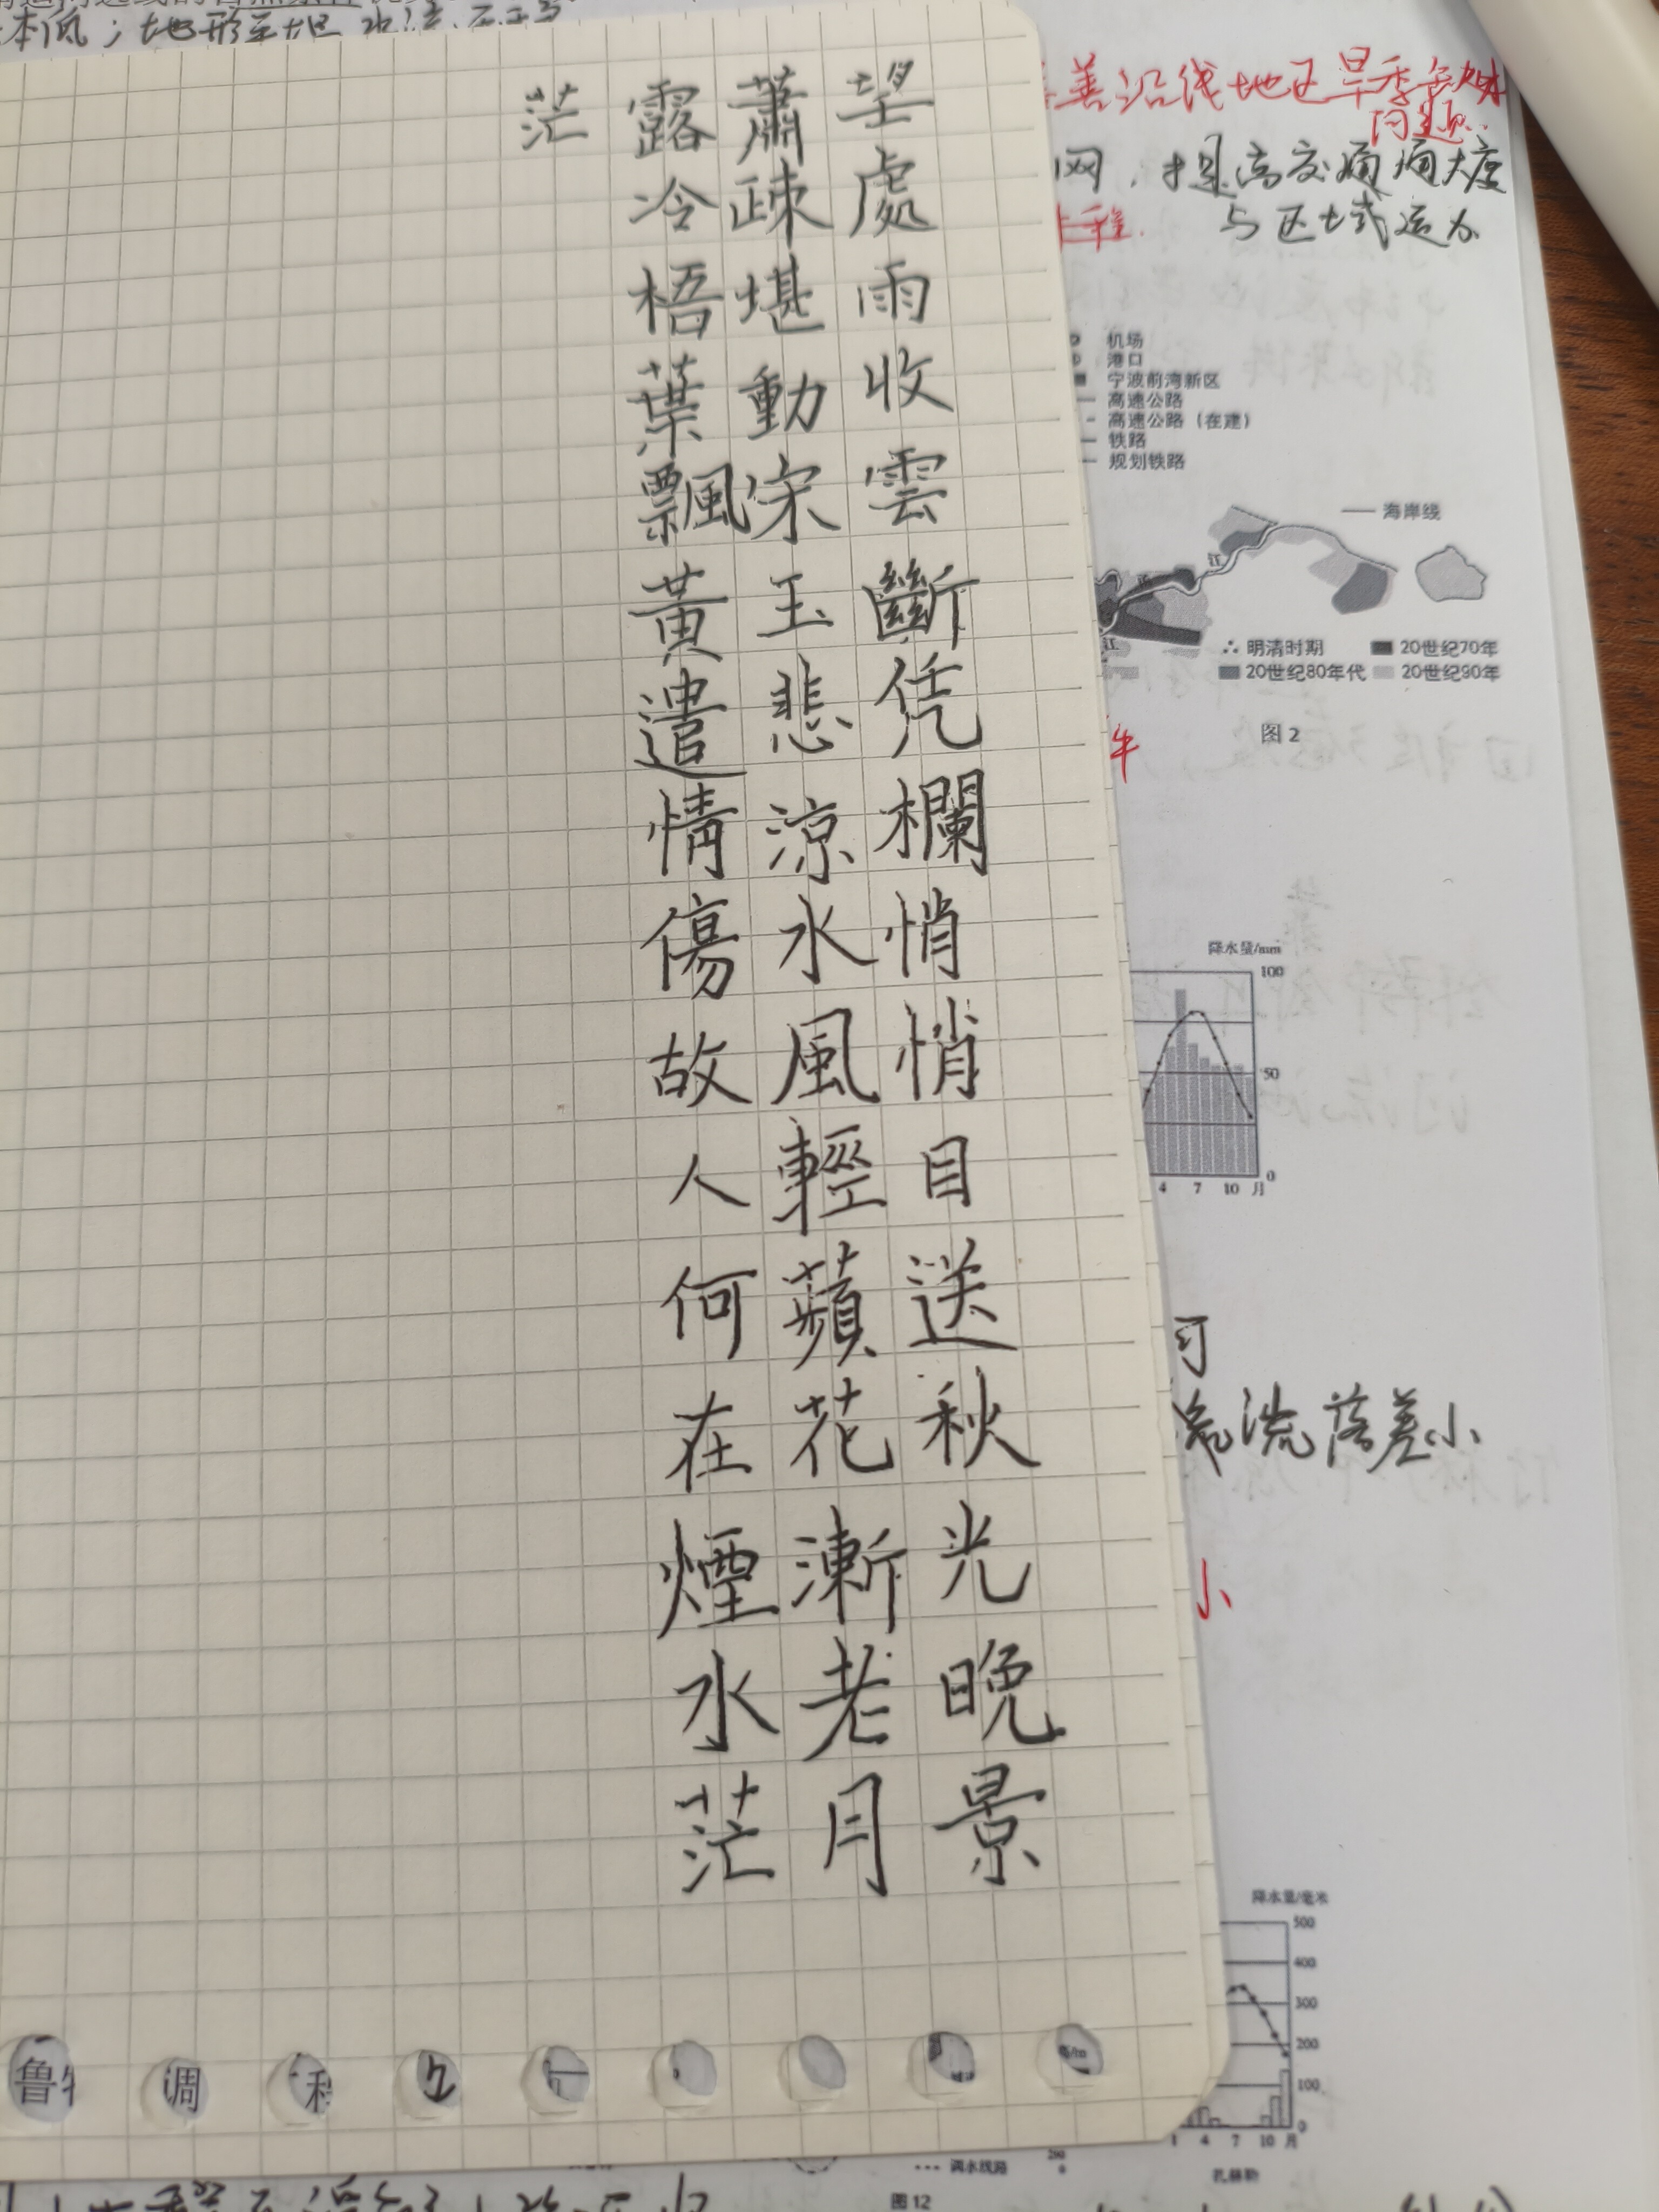 望處雨收雲斷凭欄悄悄目送秋光晚景
蕭疎堪動宋玉悲涼水風輕蘋花漸老月
露冷梧葉飄黃遣情傷故人何在煙水茫
茫
善沿线地区旱季缺水
问题
网，提高交通通达度
与区域运力
机场
港口
宁波前湾新区
高速公路
高速公路（在建）
铁路
规划铁路
海岸线
江
江
明清时期
20世纪70年
20世纪80年代
20世纪90年
图2
降水量/mm
100
50
0
4 7 10 月
河
流流落差小
小
降水量/毫米
500
400
300
200
100
0
1 4 7 10 月
调水线路
图12
鲁
调